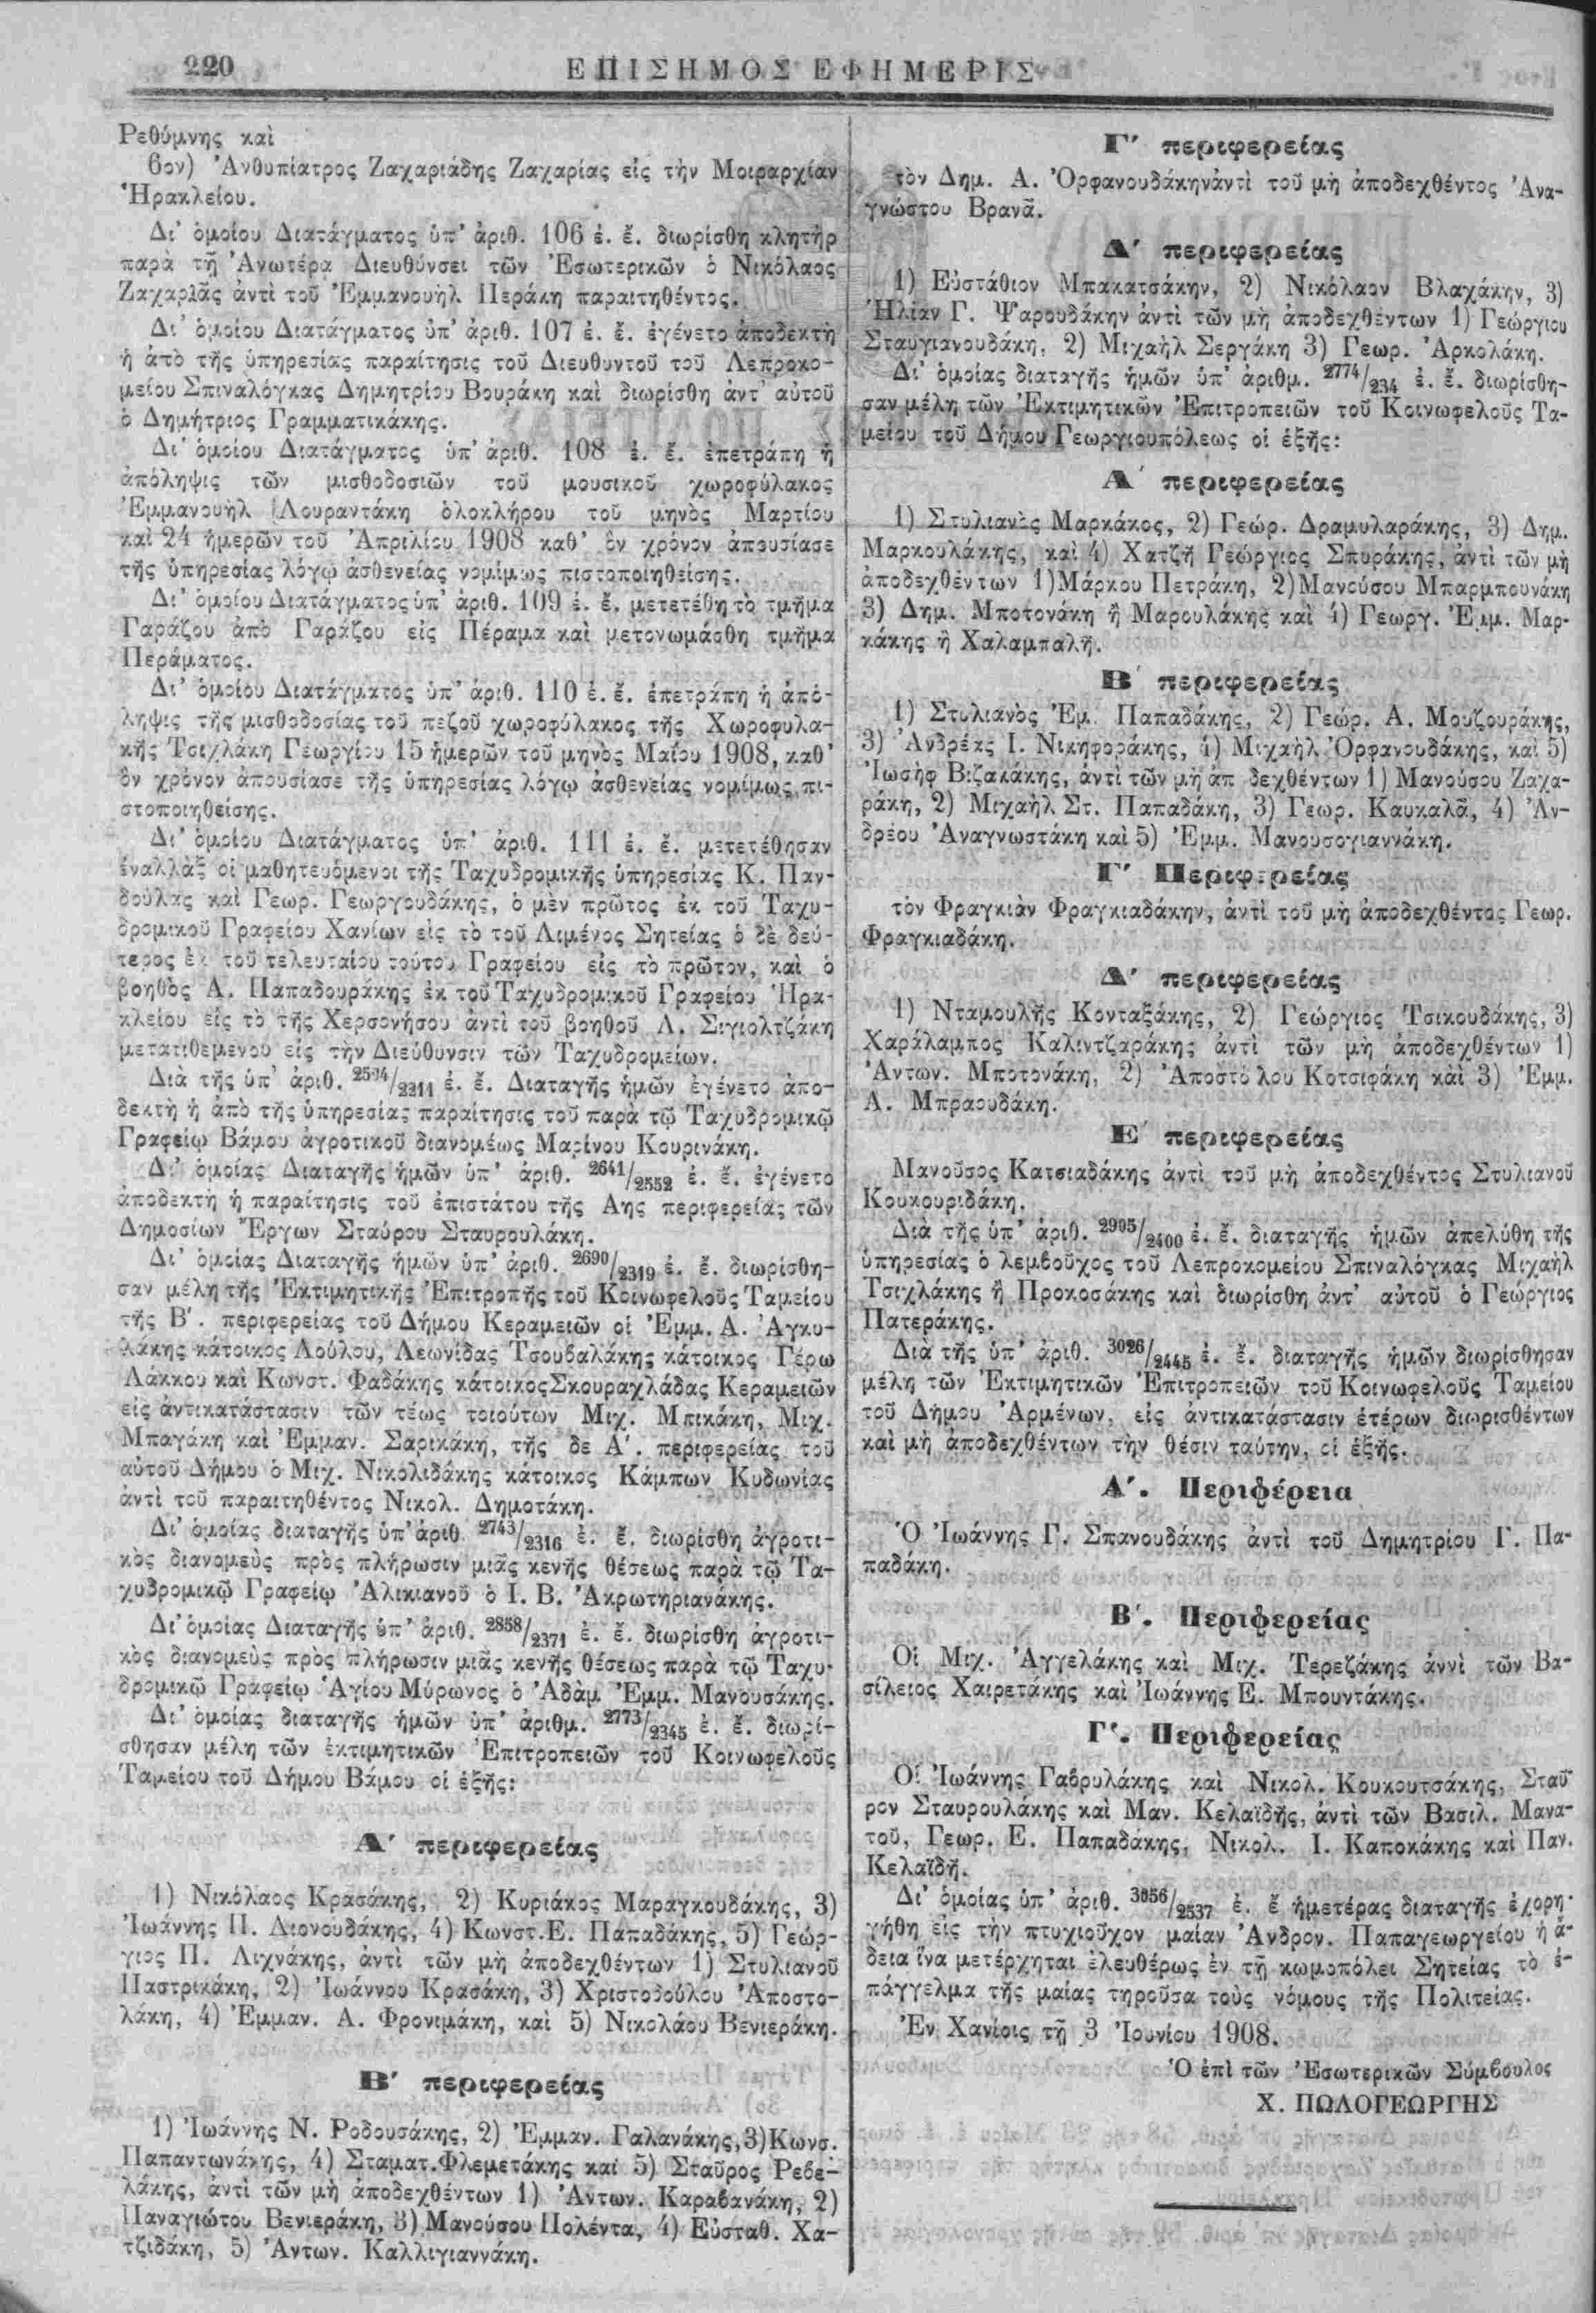 220
ΕΠΙΣΗΜΟΣ ΕΦΗΜΕΡΙΣ
Ρεθύμνης καὶ
6ον) Ἀνθυπίατρος Ζαχαριάδης Ζαχαρίας εἰς τὴν Μοιραρχίαν
Ἡρακλείου.
Δι' ὁμοίου Διατάγματος ὑπ' ἀριθ. 106 ἐ. ἔ. διωρίσθη κλητὴρ
παρὰ τῇ Ἀνωτέρᾳ Διευθύνσει τῶν Ἐσωτερικῶν ὁ Νικόλαος
Ζαχαριᾶς ἀντὶ τοῦ Ἐμμανουὴλ Περάκη παραιτηθέντος.
Δι' ὁμοίου Διατάγματος ὑπ' ἀριθ. 107 ἐ. ἔ. ἐγένετο ἀποδεκτὴ
ἡ ἀπὸ τῆς ὑπηρεσίας παραίτησις τοῦ Διευθυντοῦ τοῦ Λεπροκο-
μείου Σπιναλόγκας Δημητρίου Βουράκη καὶ διωρίσθη ἀντ' αὐτοῦ
ὁ Δημήτριος Γραμματικάκης.
Δι' ὁμοίου Διατάγματος ὑπ' ἀριθ. 108 ἐ. ἔ. ἐπετράπη ἡ
ἀπόληψις τῶν μισθοδοσιῶν τοῦ μουσικοῦ χωροφύλακος
Ἐμμανουὴλ Λουραντάκη ὁλοκλήρου τοῦ μηνὸς Μαρτίου
καὶ 24 ἡμερῶν τοῦ Ἀπριλίου 1908 καθ' ὃν χρόνον ἀπουσίασε
τῆς ὑπηρεσίας λόγῳ ἀσθενείας νομίμως πιστοποιηθείσης.
Δι' ὁμοίου Διατάγματος ὑπ' ἀριθ. 109 ἐ. ἔ. μετετέθη τὸ τμῆμα
Γαράζου ἀπὸ Γαράζου εἰς Πέραμα καὶ μετονωμάσθη τμῆμα
Περάματος.
Δι' ὁμοίου Διατάγματος ὑπ' ἀριθ. 110 ἐ. ἔ. ἐπετράπη ἡ ἀπό-
ληψις τῆς μισθοδοσίας τοῦ πεζοῦ χωροφύλακος τῆς Χωροφυλα-
κῆς Τσιχλάκη Γεωργίου 15 ἡμερῶν τοῦ μηνὸς Μαΐου 1908, καθ'
ὃν χρόνον ἀπουσίασε τῆς ὑπηρεσίας λόγῳ ἀσθενείας νομίμως πι-
στοποιηθείσης.
Δι' ὁμοίου Διατάγματος ὑπ' ἀριθ. 111 ἐ. ἔ. μετετέθησαν
ἐναλλὰξ οἱ μαθητευόμενοι τῆς Ταχυδρομικῆς ὑπηρεσίας Κ. Παν-
δούλας καὶ Γεωρ. Γεωργουδάκης, ὁ μὲν πρῶτος ἐκ τοῦ Ταχυ-
δρομικοῦ Γραφείου Χανίων εἰς τὸ τοῦ Λιμένος Σητείας ὁ δὲ δεύ-
τερος ἐκ τοῦ τελευταίου τούτου Γραφείου εἰς τὸ πρῶτον, καὶ ὁ
βοηθὸς Α. Παπαδουράκης ἐκ τοῦ Ταχυδρομικοῦ Γραφείου Ἡρα-
κλείου εἰς τὸ τῆς Χερσονήσου ἀντὶ τοῦ βοηθοῦ Λ. Σιγιολτζάκη
μετατιθεμένου εἰς τὴν Διεύθυνσιν τῶν Ταχυδρομείων.
Διὰ τῆς ὑπ' ἀριθ. 2504/2211 ἐ. ἔ. Διαταγῆς ἡμῶν ἐγένετο ἀπο-
δεκτὴ ἡ ἀπὸ τῆς ὑπηρεσίας παραίτησις τοῦ παρὰ τῷ Ταχυδρομικῷ
Γραφείῳ Βάμου ἀγροτικοῦ διανομέως Μαρίνου Κουρινάκη.
Δι' ὁμοίας Διαταγῆς ἡμῶν ὑπ' ἀριθ. 2641/2552 ἐ. ἔ. ἐγένετο
ἀποδεκτὴ ἡ παραίτησις τοῦ ἐπιστάτου τῆς Αης περιφερείας τῶν
Δημοσίων Ἔργων Σταύρου Σταυρουλάκη.
Δι' ὁμοίας Διαταγῆς ἡμῶν ὑπ' ἀριθ. 2690/2319 ἐ. ἔ. διωρίσθη-
σαν μέλη τῆς Ἐκτιμητικῆς Ἐπιτροπῆς τοῦ Κοινωφελοῦς Ταμείου
τῆς Β'. περιφερείας τοῦ Δήμου Κεραμειῶν οἱ Ἐμμ. Α. Ἀγκυ-
λάκης κάτοικος Λούλου, Λεωνίδας Τσουβαλάκης κάτοικος Γέρω
Λάκκου καὶ Κωνστ. Φαδάκης κάτοικος Σκουραχλάδας Κεραμειῶν
εἰς ἀντικατάστασιν τῶν τέως τοιούτων Μιχ. Μπικάκη, Μιχ.
Μπαγάκη καὶ Ἐμμαν. Σαρικάκη, τῆς δε Α'. περιφερείας τοῦ
αὐτοῦ Δήμου ὁ Μιχ. Νικολιδάκης κάτοικος Κάμπων Κυδωνίας
ἀντὶ τοῦ παραιτηθέντος Νικολ. Δημοτάκη.
Δι' ὁμοίας διαταγῆς ὑπ' ἀριθ. 2743/2316 ἐ. ἔ. διωρίσθη ἀγροτι-
κὸς διανομεὺς πρὸς πλήρωσιν μιᾶς κενῆς θέσεως παρὰ τῷ Τα-
χυδρομικῷ Γραφείῳ Ἀλικιανοῦ ὁ Ι. Β. Ἀκρωτηριανάκης.
Δι' ὁμοίας Διαταγῆς ὑπ' ἀριθ. 2858/2371 ἐ. ἔ. διωρίσθη ἀγροτι-
κὸς διανομεὺς πρὸς πλήρωσιν μιᾶς κενῆς θέσεως παρὰ τῷ Ταχυ-
δρομικῷ Γραφείῳ Ἁγίου Μύρωνος ὁ Ἀδὰμ Ἐμμ. Μανουσάκης.
Δι' ὁμοίας διαταγῆς ἡμῶν ὑπ' ἀριθμ. 2773/2345 ἐ. ἔ. διωρί-
σθησαν μέλη τῶν ἐκτιμητικῶν Ἐπιτροπειῶν τοῦ Κοινωφελοῦς
Ταμείου τοῦ Δήμου Βάμου οἱ ἑξῆς:
Α' περιφερείας
1) Νικόλαος Κρασάκης, 2) Κυριάκος Μαραγκουδάκης, 3)
Ἰωάννης Π. Λιονουδάκης, 4) Κωνστ. Ε. Παπαδάκης, 5) Γεώρ-
γιος Π. Λιχνάκης, ἀντὶ τῶν μὴ ἀποδεχθέντων 1) Στυλιανοῦ
Παστρικάκη, 2) Ἰωάννου Κρασάκη, 3) Χριστοδούλου Ἀποστο-
λάκη, 4) Ἐμμαν. Α. Φρονιμάκη, καὶ 5) Νικολάου Βενιεράκη.
Β' περιφερείας
1) Ἰωάννης Ν. Ροδουσάκης, 2) Ἐμμαν. Γαλανάκης, 3) Κωνσ.
Παπαντωνάκης, 4) Σταματ. Φλεμετάκης καὶ 5) Σταῦρος Ρεβε-
λάκης, ἀντὶ τῶν μὴ ἀποδεχθέντων 1) Ἀντων. Καραβανάκη, 2)
Παναγιώτου Βενιεράκη, 3) Μανούσου Πολέντα, 4) Εὐσταθ. Χα-
τζιδάκη, 5) Ἀντων. Καλλιγιαννάκη.
Γ' περιφερείας
τὸν Δημ. Α. Ὀρφανουδάκην ἀντὶ τοῦ μὴ ἀποδεχθέντος Ἀνα-
γνώστου Βρανᾶ.
Δ' περιφερείας
1) Εὐστάθιον Μπακατσάκην, 2) Νικόλαον Βλαχάκην, 3)
Ἠλίαν Γ. Ψαρουδάκην ἀντὶ τῶν μὴ ἀποδεχθέντων 1) Γεώργιου
Σταυγιανουδάκη, 2) Μιχαὴλ Σεργάκη 3) Γεωρ. Ἀρκολάκη.
Δι' ὁμοίας διαταγῆς ἡμῶν ὑπ' ἀριθμ. 2774/234 ἐ. ἔ. διωρίσθη-
σαν μέλη τῶν Ἐκτιμητικῶν Ἐπιτροπειῶν τοῦ Κοινωφελοῦς Τα-
μείου τοῦ Δήμου Γεωργιουπόλεως οἱ ἑξῆς:
Α' περιφερείας
1) Στυλιανὸς Μαρκάκος, 2) Γεώρ. Δραμυλαράκης, 3) Δημ.
Μαρκουλάκης, καὶ 4) Χατζῆ Γεώργιος Σπυράκης, ἀντὶ τῶν μὴ
ἀποδεχθέντων 1) Μάρκου Πετράκη, 2) Μανούσου Μπαρμπουνάκη
3) Δημ. Μποτονάκη ἢ Μαρουλάκης καὶ 4) Γεωργ. Ἐμμ. Μαρ-
κάκης ἢ Χαλαμπαλῆ.
Β' περιφερείας
1) Στυλιανὸς Ἐμ. Παπαδάκης, 2) Γεώρ. Α. Μουζουράκης,
3) Ἀνδρέας Ι. Νικηφοράκης, 4) Μιχαὴλ Ὀρφανουδάκης, καὶ 5)
Ἰωσὴφ Βιζακάκης, ἀντὶ τῶν μὴ ἀπ δεχθέντων 1) Μανούσου Ζαχα-
ράκη, 2) Μιχαὴλ Στ. Παπαδάκη, 3) Γεωρ. Καυκαλᾶ, 4) Ἀν-
δρέου Ἀναγνωστάκη καὶ 5) Ἐμμ. Μανουσογιαννάκη.
Γ' Περιφερείας
τὸν Φραγκιὰν Φραγκιαδάκην, ἀντὶ τοῦ μὴ ἀποδεχθέντος Γεωρ.
Φραγκιαδάκη.
Δ' περιφερείας
1) Νταμουλῆς Κονταξάκης, 2) Γεώργιος Τσικουδάκης, 3)
Χαράλαμπος Καλιντζαράκης ἀντὶ τῶν μὴ ἀποδεχθέντων 1)
Ἀντων. Μποτονάκη, 2) Ἀποστόλου Κοτσιφάκη καὶ 3) Ἐμμ.
Α. Μπραουδάκη.
Ε' περιφερείας
Μανοῦσος Κατσιαδάκης ἀντὶ τοῦ μὴ ἀποδεχθέντος Στυλιανοῦ
Κουκουριδάκη.
Διὰ τῆς ὑπ' ἀριθ. 2995/2400 ἐ. ἔ. διαταγῆς ἡμῶν ἀπελύθη τῆς
ὑπηρεσίας ὁ λεμβοῦχος τοῦ Λεπροκομείου Σπιναλόγκας Μιχαὴλ
Τσιχλάκης ἢ Προκοσάκης καὶ διωρίσθη ἀντ' αὐτοῦ ὁ Γεώργιος
Πατεράκης.
Διὰ τῆς ὑπ' ἀριθ. 3026/2445 ἐ. ἔ. διαταγῆς ἡμῶν διωρίσθησαν
μέλη τῶν Ἐκτιμητικῶν Ἐπιτροπειῶν τοῦ Κοινωφελοῦς Ταμείου
τοῦ Δήμου Ἀρμένων, εἰς ἀντικατάστασιν ἑτέρων διωρισθέντων
καὶ μὴ ἀποδεχθέντων τὴν θέσιν ταύτην, οἱ ἑξῆς.
Α'. Περιφέρεια
Ὁ Ἰωάννης Γ. Σπανουδάκης ἀντὶ τοῦ Δημητρίου Γ. Πα-
παδάκη.
Β'. Περιφερείας
Οἱ Μιχ. Ἀγγελάκης καὶ Μιχ. Τερεζάκης ἀννὶ τῶν Βα-
σίλειος Χαιρετάκης καὶ Ἰωάννης Ε. Μπουντάκης.
Γ'. Περιφερείας
Οἱ Ἰωάννης Γαβρυλάκης καὶ Νικολ. Κουκουτσάκης, Σταῦ
ρον Σταυρουλάκης καὶ Μαν. Κελαϊδῆς, ἀντὶ τῶν Βασιλ. Μανα-
τοῦ, Γεωρ. Ε. Παπαδάκης, Νικολ. Ι. Καποκάκης καὶ Παν.
Κελαϊδῆ.
Δι' ὁμοίας ὑπ' ἀριθ. 3056/2537 ἐ. ἔ ἡμετέρας διαταγῆς ἐχορη-
γήθη εἰς τὴν πτυχιοῦχον μαίαν Ἀνδρον. Παπαγεωργείου ἡ ἄ-
δεια ἵνα μετέρχηται ἐλευθέρως ἐν τῇ κωμοπόλει Σητείας τὸ ἐ-
πάγγελμα τῆς μαίας τηροῦσα τοὺς νόμους τῆς Πολιτείας.
Ἐν Χανίοις τῇ 3 Ἰουνίου 1908.
Ὁ ἐπὶ τῶν Ἐσωτερικῶν Σύμβουλος
Χ. ΠΩΛΟΓΕΩΡΓΗΣ